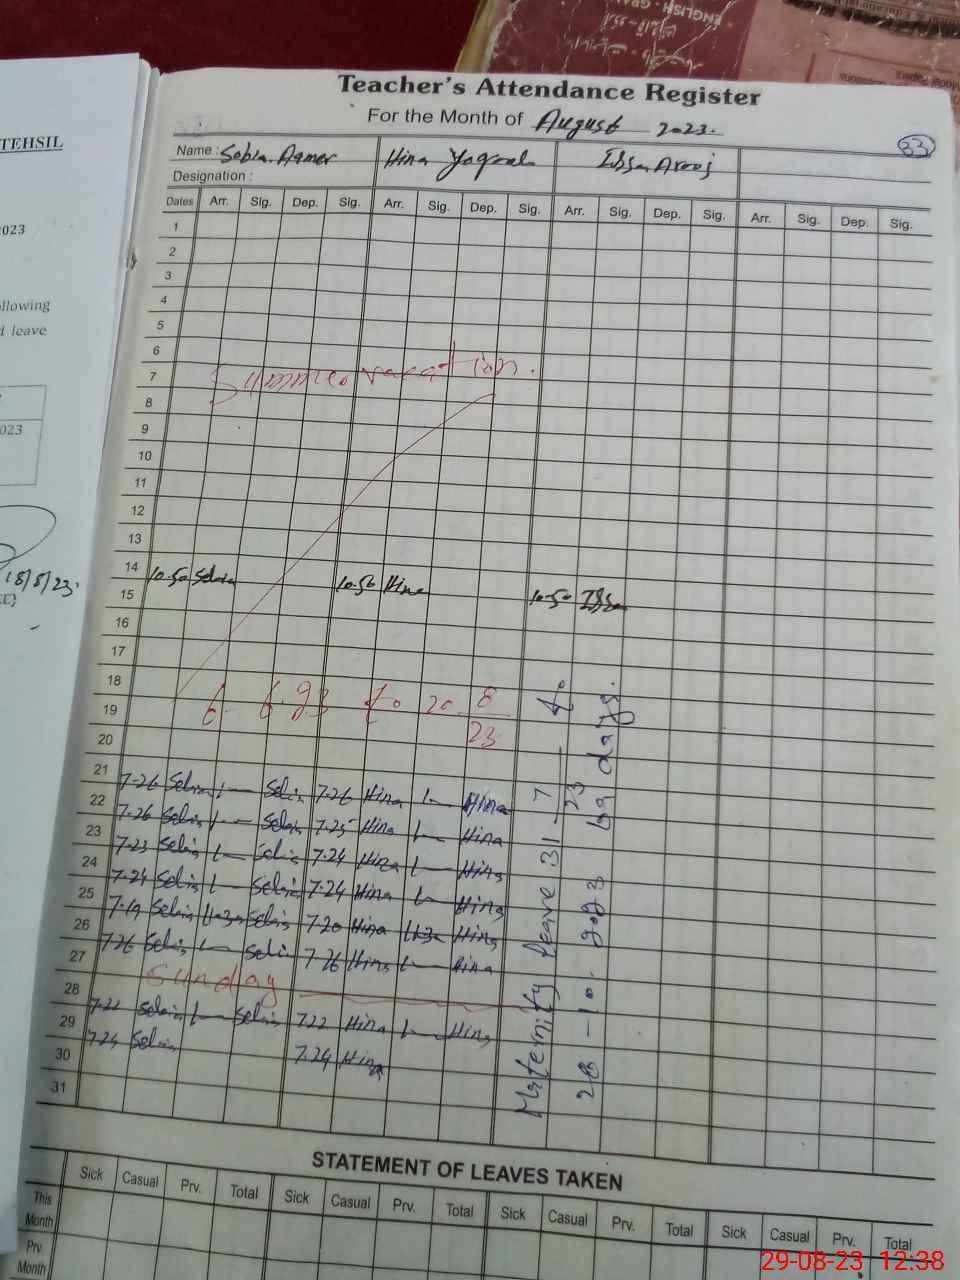 ENGLISH - GRA
TEHSIL
2023
ollowing
d leave
023
18/8/23
Teacher's Attendance Register
For the Month of August 2023.
33
Name : Sobia Aamer Hina Yaqoob Arooj
Designation :
Dates Arr. Sig. Dep. Sig. Arr. Sig. Dep. Sig. Arr. Sig. Dep. Sig. Arr. Sig. Dep. Sig.
1
2
3
4
5
6
7 Summer vacation.
8
9
10
11
12
13
14
15 10-50 Sobia 10-50 Hina 10-50
16
17
18
19 6-6-23 to 20-8-23
20
21 7-26 Sobia 1 — Sobia 7-26 Hina 1 — Hina
22 7-26 Sobia 1 — Sobia 7-25 Hina 1 — Hina
23 7-23 Sobia 1 — Sobia 7-24 Hina 1 — Hina
24 7-24 Sobia 1 — Sobia 7-24 Hina 1 — Hina
25 7-19 Sobia Sobia 7-20 Hina Hina
26 7-26 Sobia 1 — Sobia 7-26 Hina 1 — Hina
27 Sunday
28 7-22 Sobia 1 — Sobia 7-22 Hina 1 — Hina
29 7-24 Sobia 7-24 Hina
30
31
Maternity leave 31-7-23 to
28-10-2023 days.
STATEMENT OF LEAVES TAKEN
Sick Casual Prv. Total Sick Casual Prv. Total Sick Casual Prv. Total Sick Casual Prv. Total
This Month
Prv Month
29-08-23 12:38